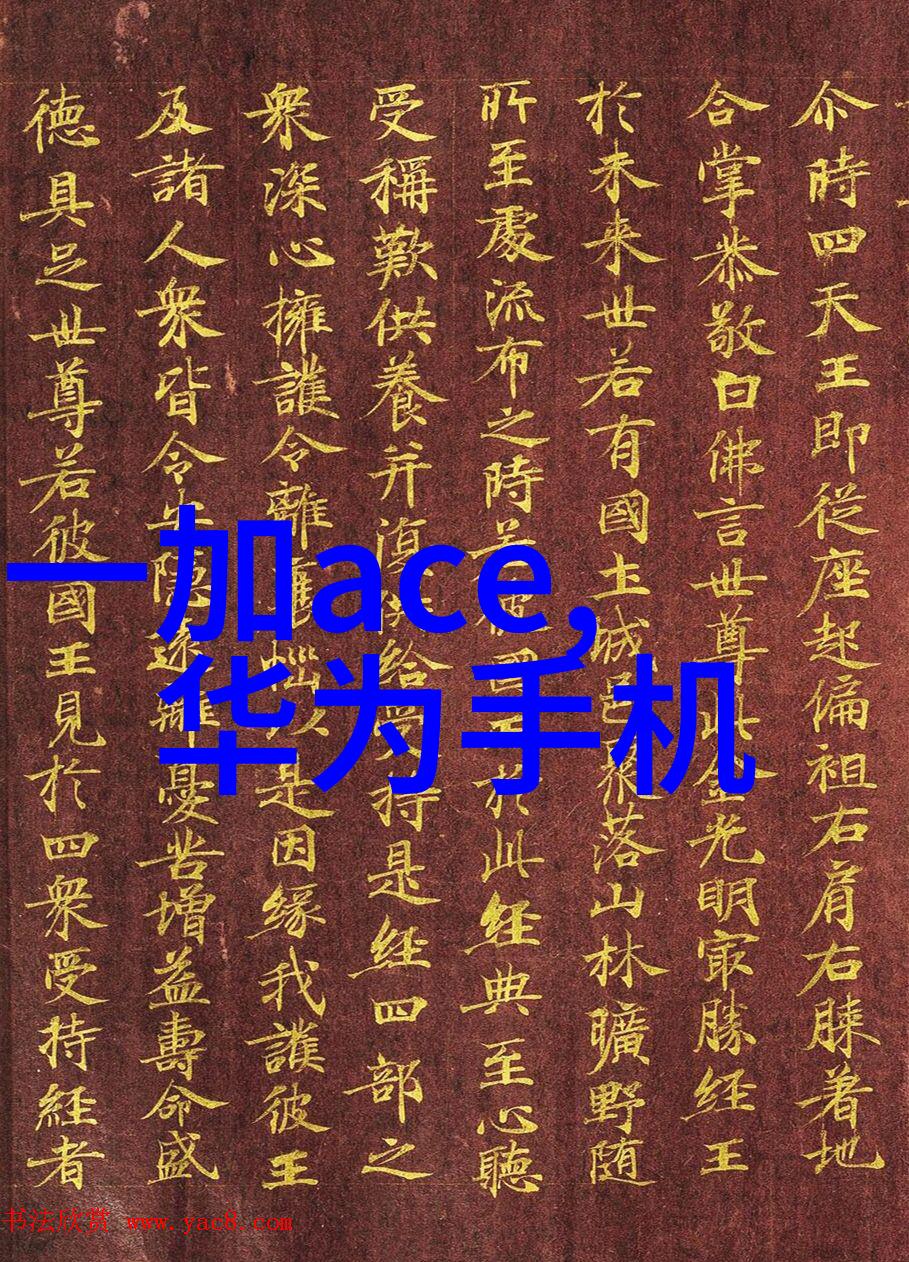 尒時四天王即従座起偏袒右肩右膝著地
合掌恭敬白佛言世尊此金光明㝡勝経王
於未来世若有國土城邑聚落山林曠野随
所至處流布之時若彼國王於此経典至心聽
受稱歎供養并湏供給受持是経四部之
衆深心擁護令離衰惱以是因緣我護彼王
及諸人衆皆令安隐逺離憂苦增益壽命盛
徳具足世尊若彼國王見於四衆受持経者
一加ace,
华为手机
书法欣赏 www.yac8.com